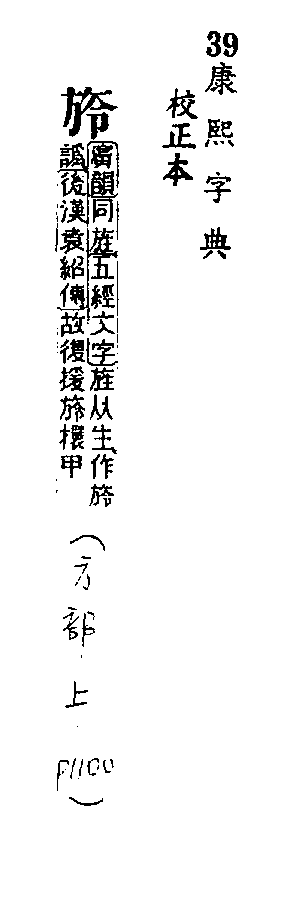 39
康熙字典
校正本
㫌
廣韻同旌五經文字旌从生作㫌
譌後漢袁紹傳故復援㫌擐甲
(方部上 P1100)